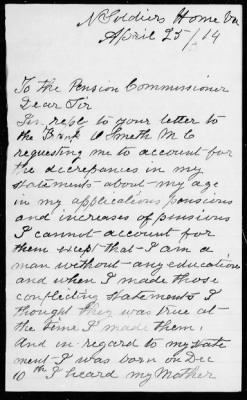 N Soldiers Home Va
April 25/14
To the Pension Commissioner
Dear Sir
In refc to your letter to
the B. & O Smeth M C
requesting me to account for
the discrepances in my
statements about my age
in my applications pensions
and increases of pensions
I cannot account for
them except that I am a
man without any education
and when I made those
conflicting statements I
thought they was true at
the time I made them.
And in regard to my state
ment I was born on Dec
10th I heard my Mother